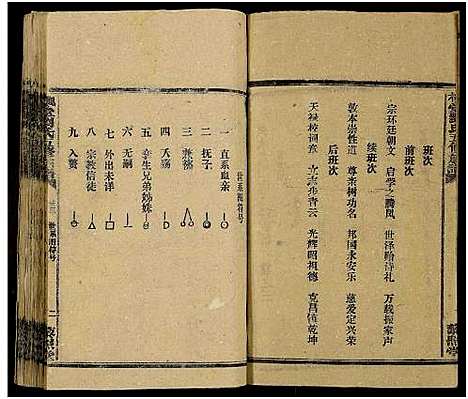 班次
前班次
宗环廷朝文 启学之腾凤 世泽贻诗礼 万载振家声
续班次
敦本崇性道 尊亲树功名 邦国永安乐 慈爱定兴荣
后班次
天禄校词艺 志士步青云 光辉昭祖德 克昌镇乾坤
一 直系血亲
二 抚子
三 兼祧
四 夭殇
五 孪生兄弟姊妹
六 无嗣
七 外出未详
八 宗教信徒
九 入赘
世系图符号
二